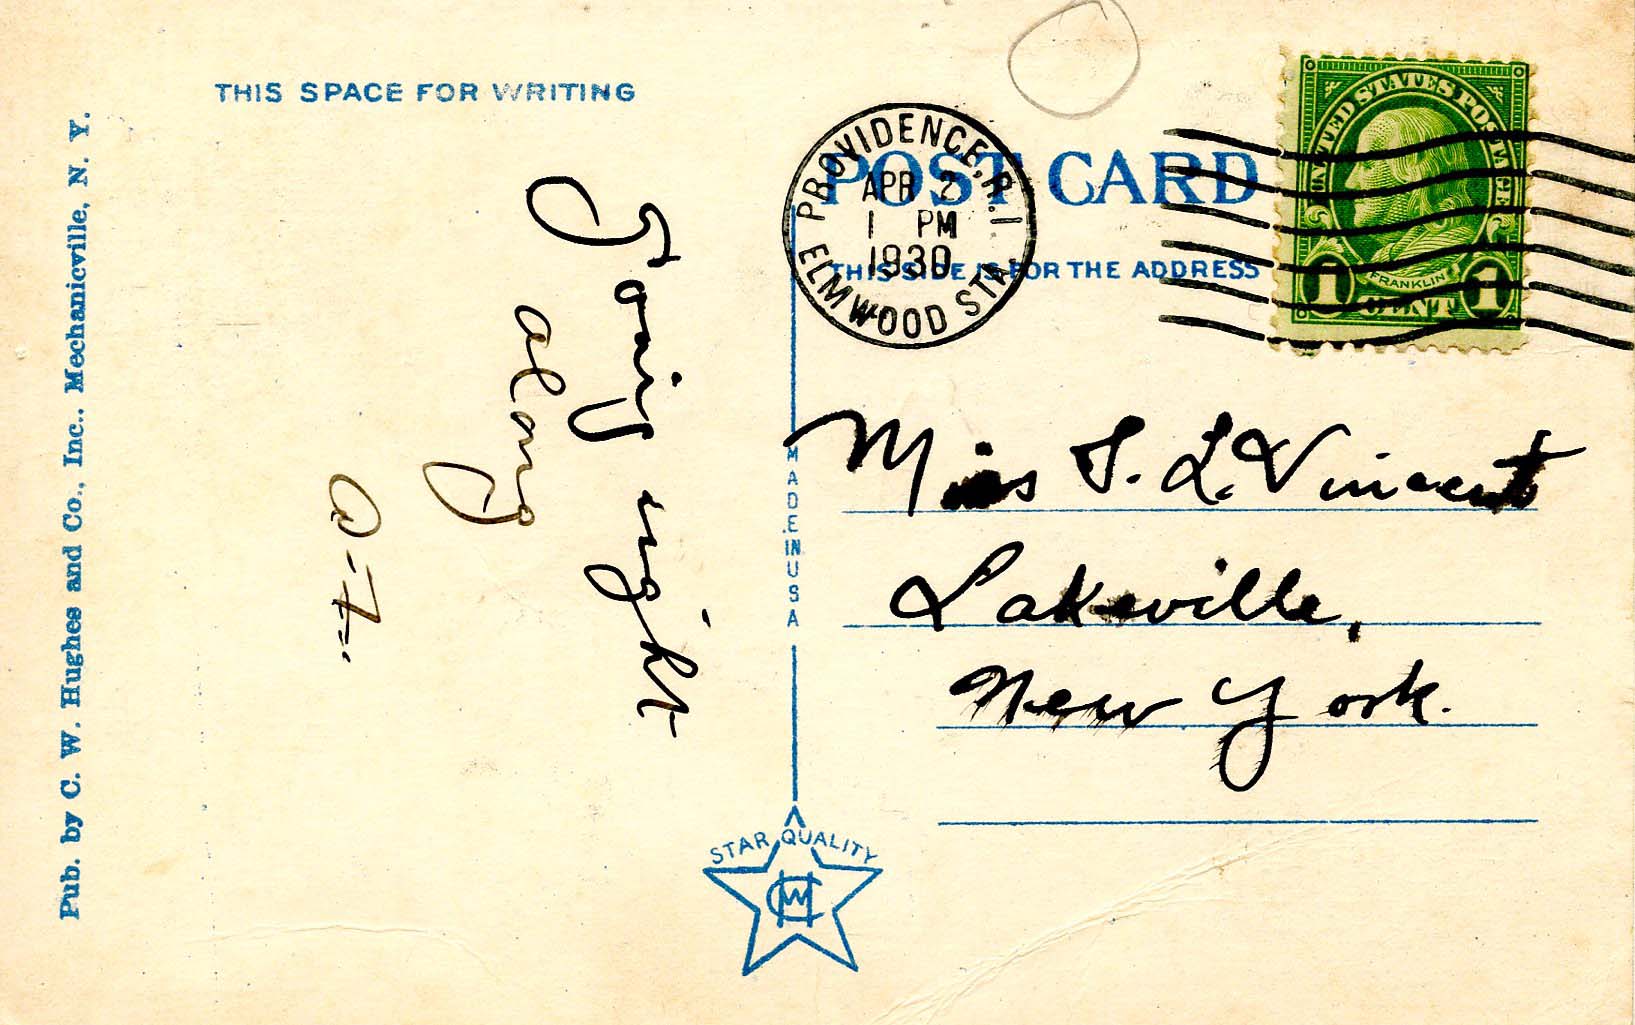 THIS SPACE FOR WRITING
Pub. by C. W. Hughes and Co., Inc., Mechanicville, N. Y.
Going right
along
POST CARD
THIS SIDE IS FOR THE ADDRESS
PROVIDENCE, R.I.
APR 2
1 PM
1930
ELMWOOD STA.
UNITED STATES POSTAGE
FRANKLIN
1 CENT 1
MADE IN USA
Miss S. L. Vincent
Lakeville,
New York.
STAR QUALITY
CWH